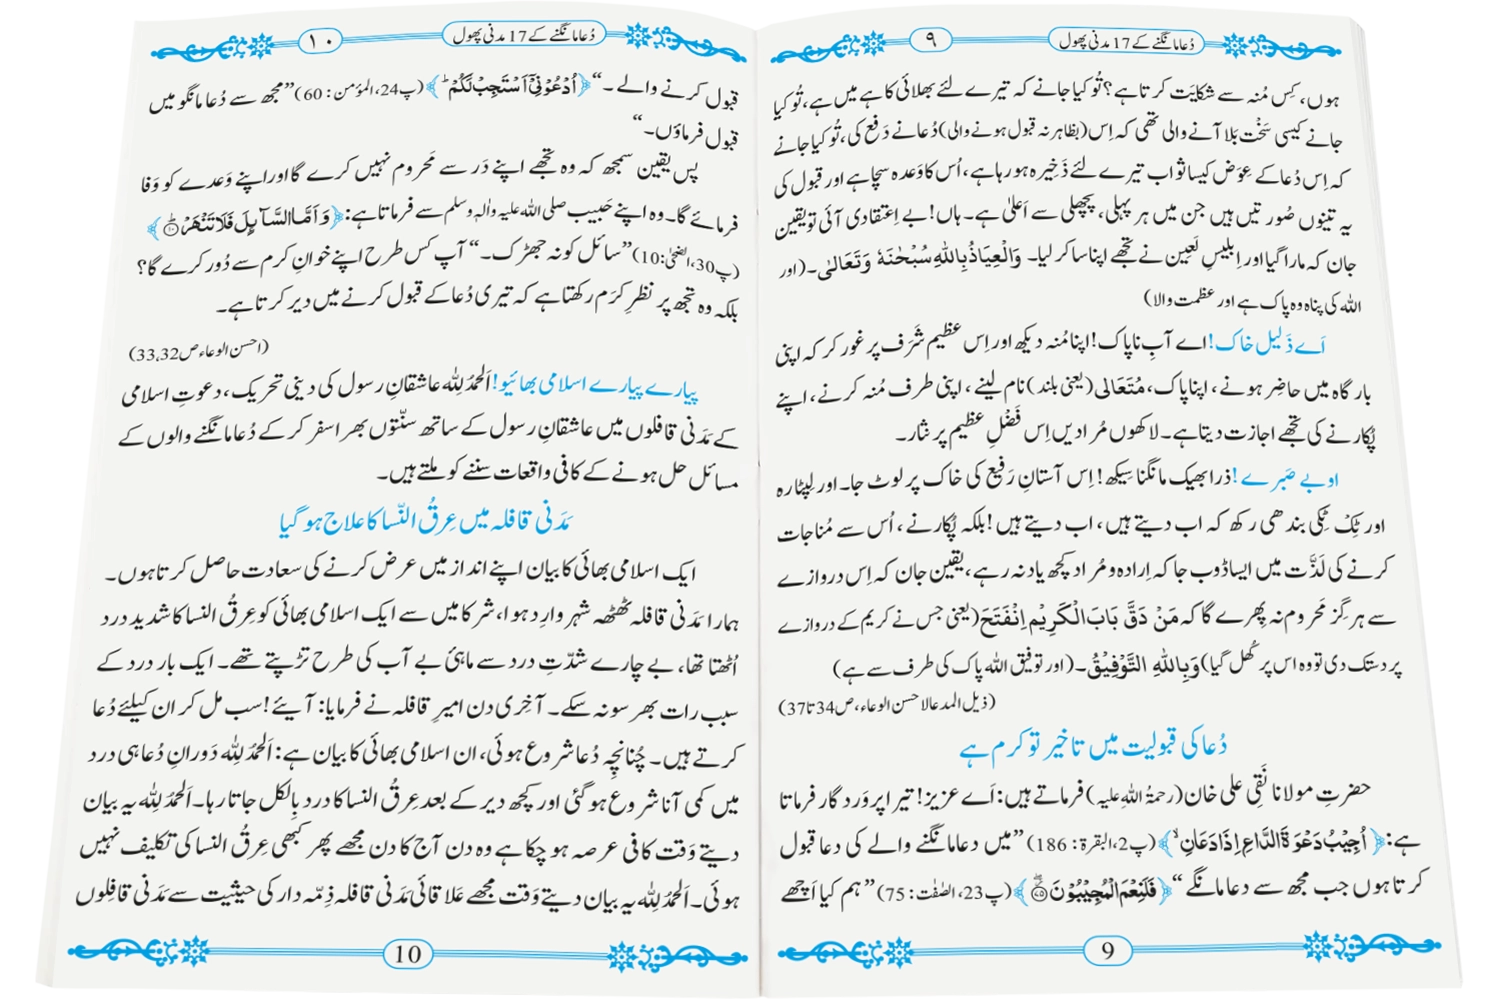 دُعا مانگنے کے 17 مدنی پھول
۹
ہوں، کِس مُنہ سے شکایَت کرتا ہے؟ تُو کیا جانے کہ تیرے لئے بھلائی کا ہے میں ہے، تُو کیا
جانے کیسی سَخْت بَلا آنے والی تھی کہ اِس (بظاہر نہ قبول ہونے والی) دُعا نے دَفع کی، تُو کیا جانے
کہ اِس دُعا کے عِوَض کیسا ثواب تیرے لئے ذَخِیرہ ہو رہا ہے، اُس کا وَعدہ سچّا ہے اور قبول کی
یہ تینوں صُورتیں ہیں جن میں ہر پہلی، پچھلی سے اَعلیٰ ہے۔ ہاں! بے اِعتقادی آئی تو یقین
جان کہ مارا گیا اور اِبلیسِ لَعِین نے تجھے اپنا سا کر لیا۔ وَالْعِیَاذُ بِاللہِ سُبْحٰنَہٗ وَتَعَالٰی۔ (اور
اللہ کی پناہ وہ پاک ہے اور عظمت والا)
اَے ذَلیل خاک! اے آبِ ناپاک! اپنا مُنہ دیکھ اور اِس عظیم شَرَف پر غور کر کہ اپنی
بارگاہ میں حاضِر ہونے، اپنا پاک، مُتَعَالی (یعنی بلند) نام لینے، اپنی طرف مُنہ کرنے، اپنے
پُکارنے کی تجھے اجازت دیتا ہے۔ لاکھوں مُرادیں اِس فَضْلِ عظیم پر نثار۔
او بے صَبرے! ذرا بھیک مانگنا سیکھ! اِس آستانِ رَفیع کی خاک پر لوٹ جا۔ اور لِپٹا رہ
اور ٹِک ٹِکی بندھی رکھ کہ اب دیتے ہیں، اب دیتے ہیں! بلکہ پُکارنے، اُس سے مُناجات
کرنے کی لَذَّت میں ایسا ڈوب جا کہ اِرادہ و مُراد کچھ یاد نہ رہے، یقین جان کہ اِس دروازے
سے ہرگِز مَحروم نہ پھرے گا کہ مَنْ دَقَّ بَابَ الْکَرِیْمِ اِنْفَتَحَ (یعنی جس نے کریم کے دروازے
پر دستک دی تو وہ اس پر کُھل گیا) وَبِاللہِ التَّوْفِیْقُ۔ (اور توفیق اللہ پاک کی طرف سے ہے)
(ذیل المدعا لاحسن الوعاء، ص34 تا37)
دُعا کی قبولیت میں تاخیر تو کرم ہے
حضرتِ مولانا نَقِی علی خان (رحمۃُ اللہِ علیہ) فرماتے ہیں: اَے عزیز! تیرا پروَردگار فرماتا
ہے: ﴿اُجِیْبُ دَعْوَۃَ الدَّاعِ اِذَا دَعَانِ ۙ﴾ (پ2، البقرۃ: 186) ”میں دعا مانگنے والے کی دعا قبول
کرتا ہوں جب مجھ سے دعا مانگے“ ﴿فَلَنِعْمَ الْمُجِیْبُوْنَ﴾ (پ23، الصّٰفّٰت: 75) ”ہم کیا اَچھے
9
دُعا مانگنے کے 17 مدنی پھول
۱۰
قبول کرنے والے۔“ ﴿اُدْعُوْنِیْۤ اَسْتَجِبْ لَکُمْ ؕ﴾ (پ24، المؤمن: 60) ”مجھ سے دُعا مانگو میں
قبول فرماؤں۔“
پس یقین سمجھ کہ وہ تجھے اپنے دَر سے مَحروم نہیں کرے گا اور اپنے وَعدے کو وَفا
فرمائے گا۔ وہ اپنے حَبیب صلی اللہ علیہ والہٖ وسلم سے فرماتا ہے: ﴿وَ اَمَّا السَّآىٕلَ فَلَا تَنْهَرْؕ﴾
(پ30، الضحیٰ: 10) ”سائل کو نہ جھڑک۔“ آپ کس طرح اپنے خوانِ کرم سے دُور کرے گا؟
بلکہ وہ تجھ پر نظرِ کَرَم رکھتا ہے کہ تیری دُعا کے قبول کرنے میں دیر کرتا ہے۔
(احسن الوعاء ص33،32)
پیارے پیارے اسلامی بھائیو! اَلحمدُ لِلّٰہ عاشقانِ رسول کی دینی تحریک، دعوتِ اسلامی
کے مَدَنی قافلوں میں عاشقانِ رسول کے ساتھ سنّتوں بھرا سفر کر کے دُعا مانگنے والوں کے
مسائل حل ہونے کے کافی واقعات سننے کو ملتے ہیں۔
مَدَنی قافلہ میں عِرقُ النّسا کا علاج ہو گیا
ایک اسلامی بھائی کا بیان اپنے انداز میں عرض کرنے کی سعادت حاصل کرتا ہوں۔
ہمارا مَدَنی قافلہ ٹھٹھہ شہر وارِد ہوا، شرکا میں سے ایک اسلامی بھائی کو عِرقُ النسا کا شدید درد
اُٹھتا تھا، بے چارے شدّتِ درد سے ماہیٔ بے آب کی طرح تڑپتے تھے۔ ایک بار درد کے
سبب رات بھر سو نہ سکے۔ آخِری دن امیرِ قافلہ نے فرمایا: آیئے! سب مل کر ان کیلئے دُعا
کرتے ہیں۔ چُنانچِہ دُعا شروع ہوئی، ان اسلامی بھائی کا بیان ہے: اَلحمدُ لِلّٰہ دَورانِ دُعا ہی درد
میں کمی آنا شروع ہو گئی اور کچھ دیر کے بعد عِرقُ النسا کا درد بِالکل جاتا رہا۔ اَلحمدُ لِلّٰہ یہ بیان
دیتے وَقت کافی عرصہ ہو چکا ہے وہ دن آج کا دن مجھے پھر کبھی عِرقُ النسا کی تکلیف نہیں
ہوئی۔ اَلحمدُ لِلّٰہ یہ بیان دیتے وَقت مجھے عَلاقائی مَدَنی قافلہ ذِمّہ دار کی حیثیت سے مَدَنی قافِلوں
10